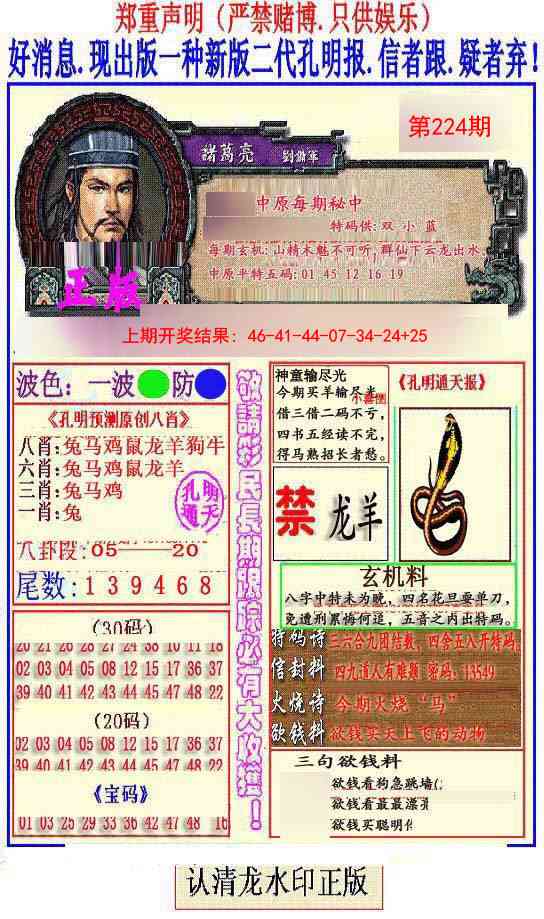 郑重声明（严禁赌博.只供娱乐）
好消息.现出版一种新版二代孔明报.信者跟.疑者弃！
第224期
諸葛亮
中原每期秘中
特码供: 双 小 蓝
每期玄机: 山精木魅不可听, 群仙下云龙出水
中原平特五码: 01 45 12 16 19
正版
上期开奖结果: 46-41-44-07-34-24+25
波色: 一波 防
《孔明预测原创八肖》
八肖: 兔马鸡鼠龙羊狗牛
六肖: 兔马鸡鼠龙羊
三肖: 兔马鸡
一肖: 兔
孔明
通天
八卦段: 05——20
尾数: 1 3 9 4 6 8
(30码)
20 21 26 28 27 24 38 10 11 18
02 03 04 05 08 12 15 17 36 37
39 40 41 42 43 44 45 47 48 22
(20码)
02 03 04 05 08 12 15 17 36 37
39 40 41 42 43 44 45 47 48 22
《宝码》
01 03 25 29 33 36 42 47 48 16
敬請彩民長期跟踪必有大收獲！
神童输尽光
今期买羊输尽光
借三借二码不亏,
四书五经读不完,
得马熟招长者愁。
《孔明通天报》
禁 龙羊
玄机料
八字中特未为晚, 四名花旦耍单刀,
免遭刑累悔何迟, 五音之内出特码。
特码诗 二六合九团结数, 四舍五入开特码
信封料 四九道人有难题 密码: 13549
火烧诗 今期火烧“马”
欲钱料 欲钱买天上飞的动物
三句欲钱料
欲钱看狗急跳墙(
欲钱看最最潇
欲钱买聪明
认清龙水印正版